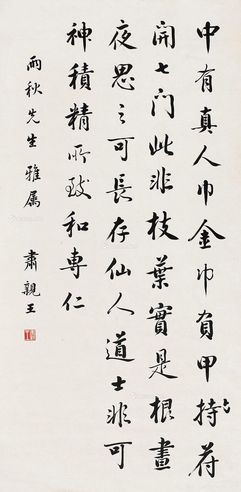 中有真人巾金巾負甲持符
開七門此非枝葉實是根晝
夜思之可長存仙人道士非可
神積精所致和專仁
雨秋先生雅属
肅親王